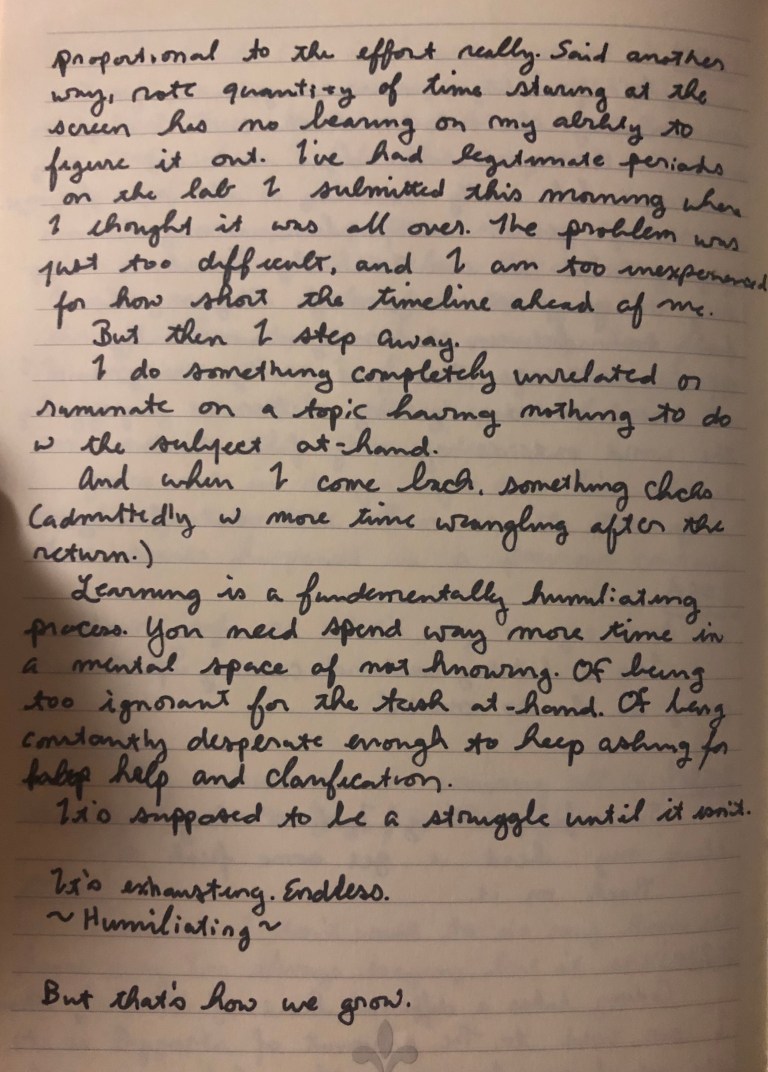 proportional to the effort really. Said another
way, rote quantity of time staring at the
screen has no bearing on my ability to
figure it out. I've had legitimate periods
on the lab I submitted this morning where
I thought it was all over. The problem was
just too difficult, and I am too inexperienced
for how short the timeline ahead of me.
But then I step away.
I do something completely unrelated or
ruminate on a topic having nothing to do
w the subject at-hand.
And when I come back, something clicks
(admittedly w more time wrangling after the
return.)
Learning is a fundamentally humiliating
process. You need spend way more time in
a mental space of not knowing. Of being
too ignorant for the task at-hand. Of being
constantly desperate enough to keep asking for
help and clarification.
It's supposed to be a struggle until it isn't.
It's exhausting. Endless.
~Humiliating~
But that's how we grow.